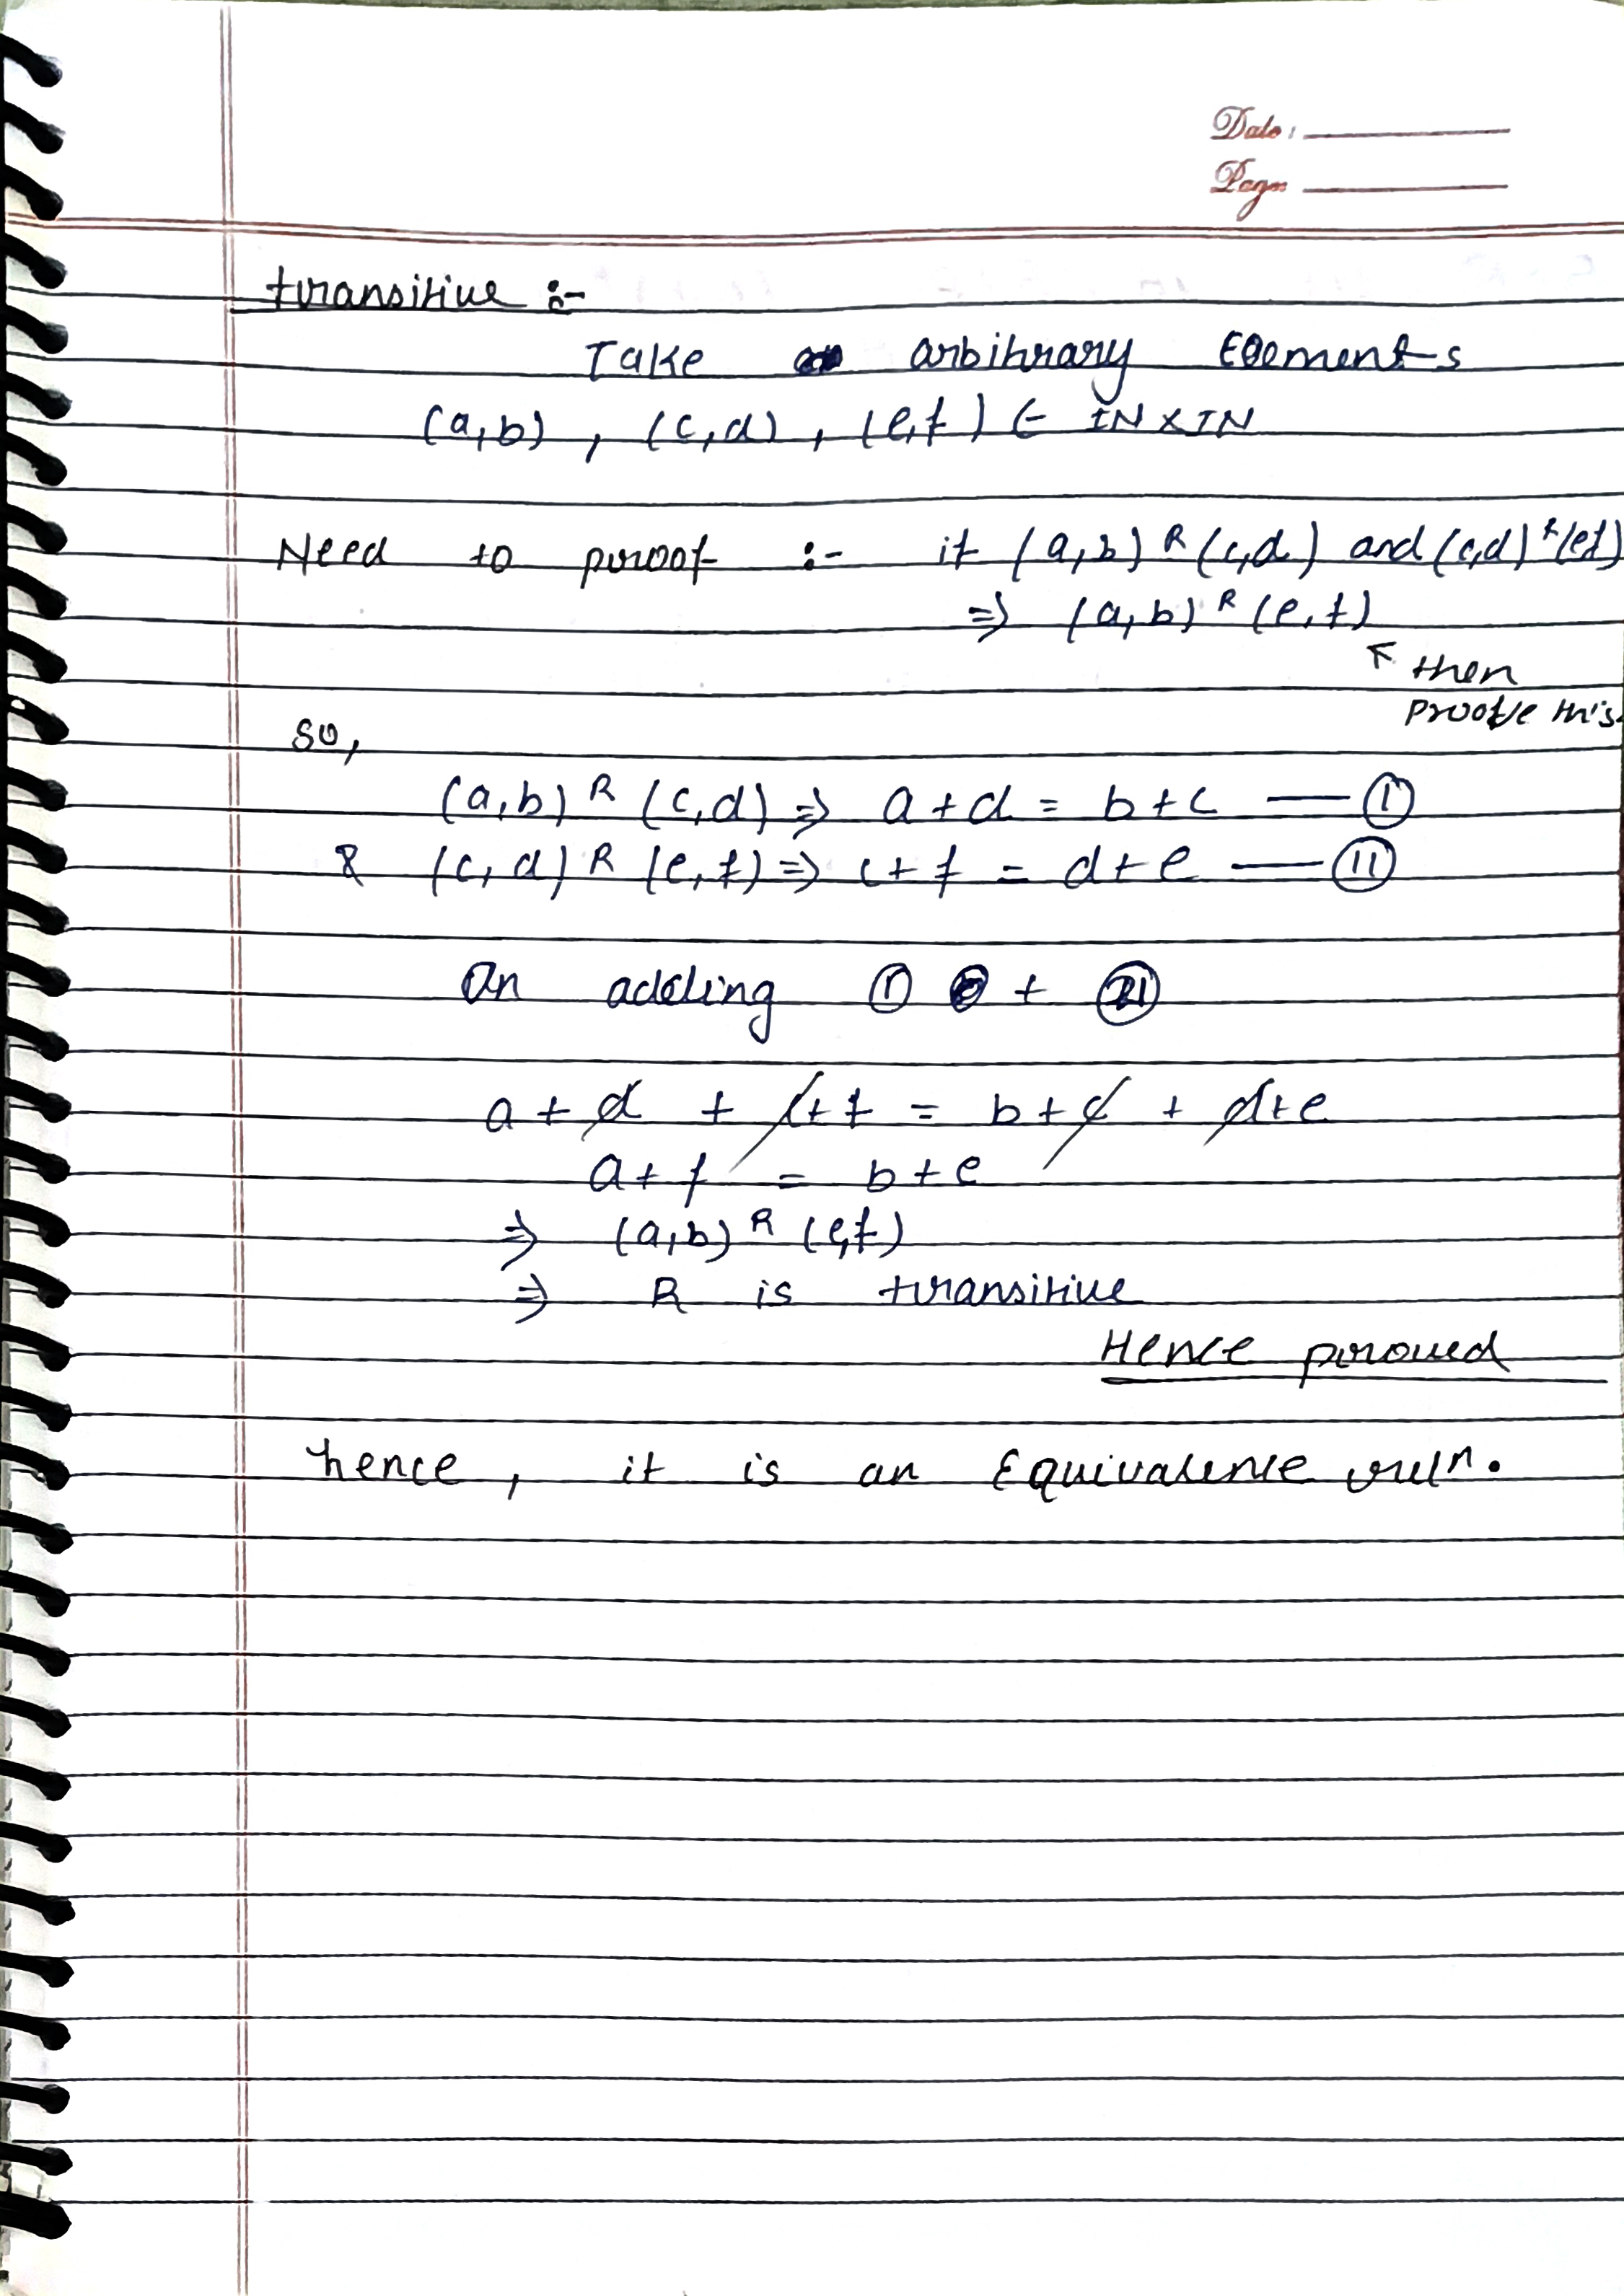 Date:
Page
transitive :-
Take arbitrary Elements
(a,b) , (c,d) , (e,f) ∈ IN X IN
Need to proof :- if (a,b) R (c,d) and (c,d) R (e,f)
=> (a,b) R (e,f)
↖ then
Proofve this.
so,
(a,b) R (c,d) => a + d = b + c —— (I)
& (c,d) R (e,f) => c + f = d + e —— (II)
On adding (I) + (II)
a + d + c + f = b + c + d + e
a + f = b + e
=> (a,b) R (e,f)
=> R is transitive
Hence proved
hence , it is an Equivalence reln.